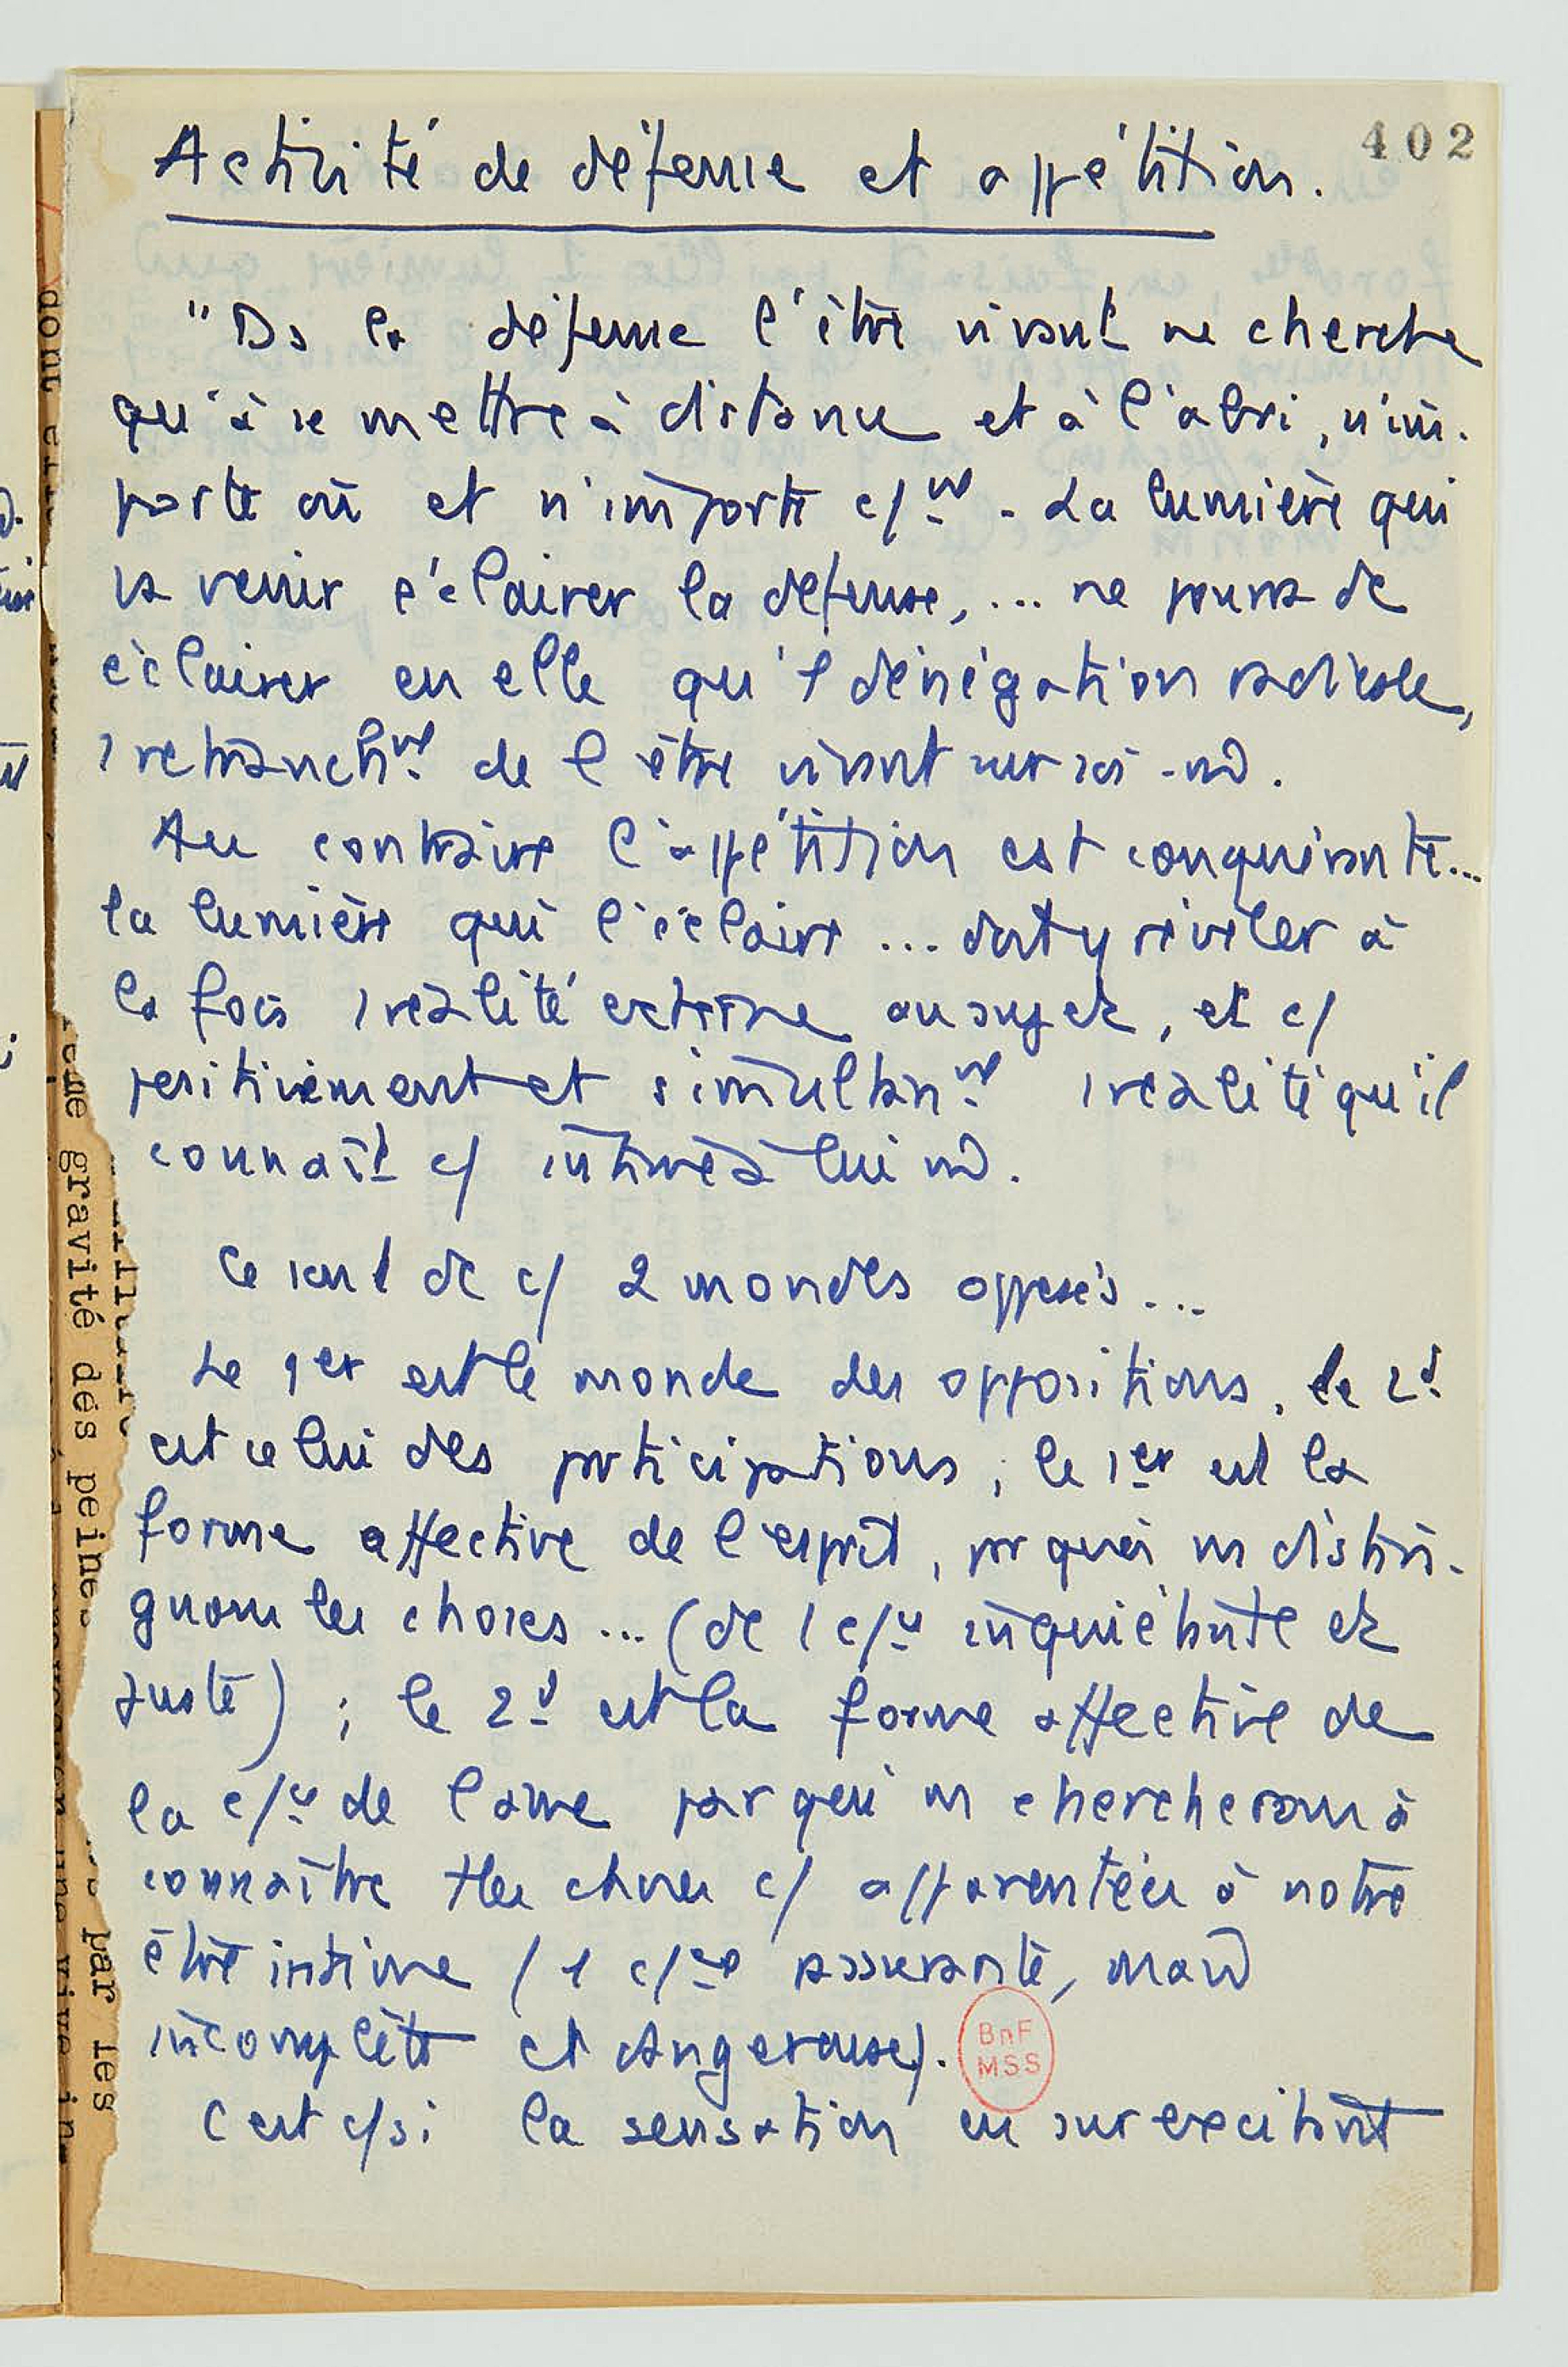 402
Activité de défense et appétition.
"Ds la défense l'être vivant ne cherche
qu'à se mettre à distance et à l'abri, n'im-
porte où et n'importe c/nt. La lumière qui
va venir éclairer la défense, ... ne pourra de
éclairer en elle qu'1 dénégation radicale,
1 retranchnt de l'être vivant sur soi-m̂.
Au contraire l'appétition est conquérante...
la lumière qui l'éclaire ... doit y révéler à
la fois 1 réalité externe au sujet, et c/
positivement et simultannt 1 réalité qu'il
connaît c/ intime à lui m̂.
Ce sont de c/ 2 mondes opposés...
Le 1er est le monde des oppositions, le 2d
est celui des participations ; le 1er est la
forme affective de l'esprit, par quoi ns distin-
guons les choses ... (de 1 c/ce inquiétante et
juste) ; le 2d est la forme affective de
la c/ce de l'ame par qui ns chercherons à
connaître ttes choses c/ apparentées à notre
être intime (1 c/ce rassurante, mais
incomplète et dangereuse).
C'est c/si la sensation en surexcitant
BnF
MSS
dont
gravité des peines
par les
une vive in-